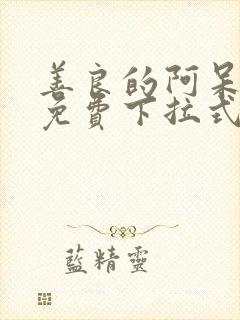 善良的阿呆
免費下拉式
藍精靈